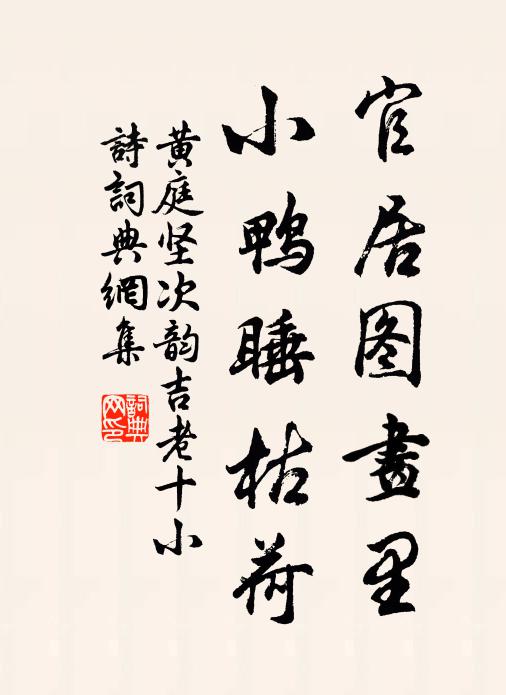 官居图畫里
小鸭睡枯荷
黄庭坚次韵吉老十小
詩詞典網集
詞典网印